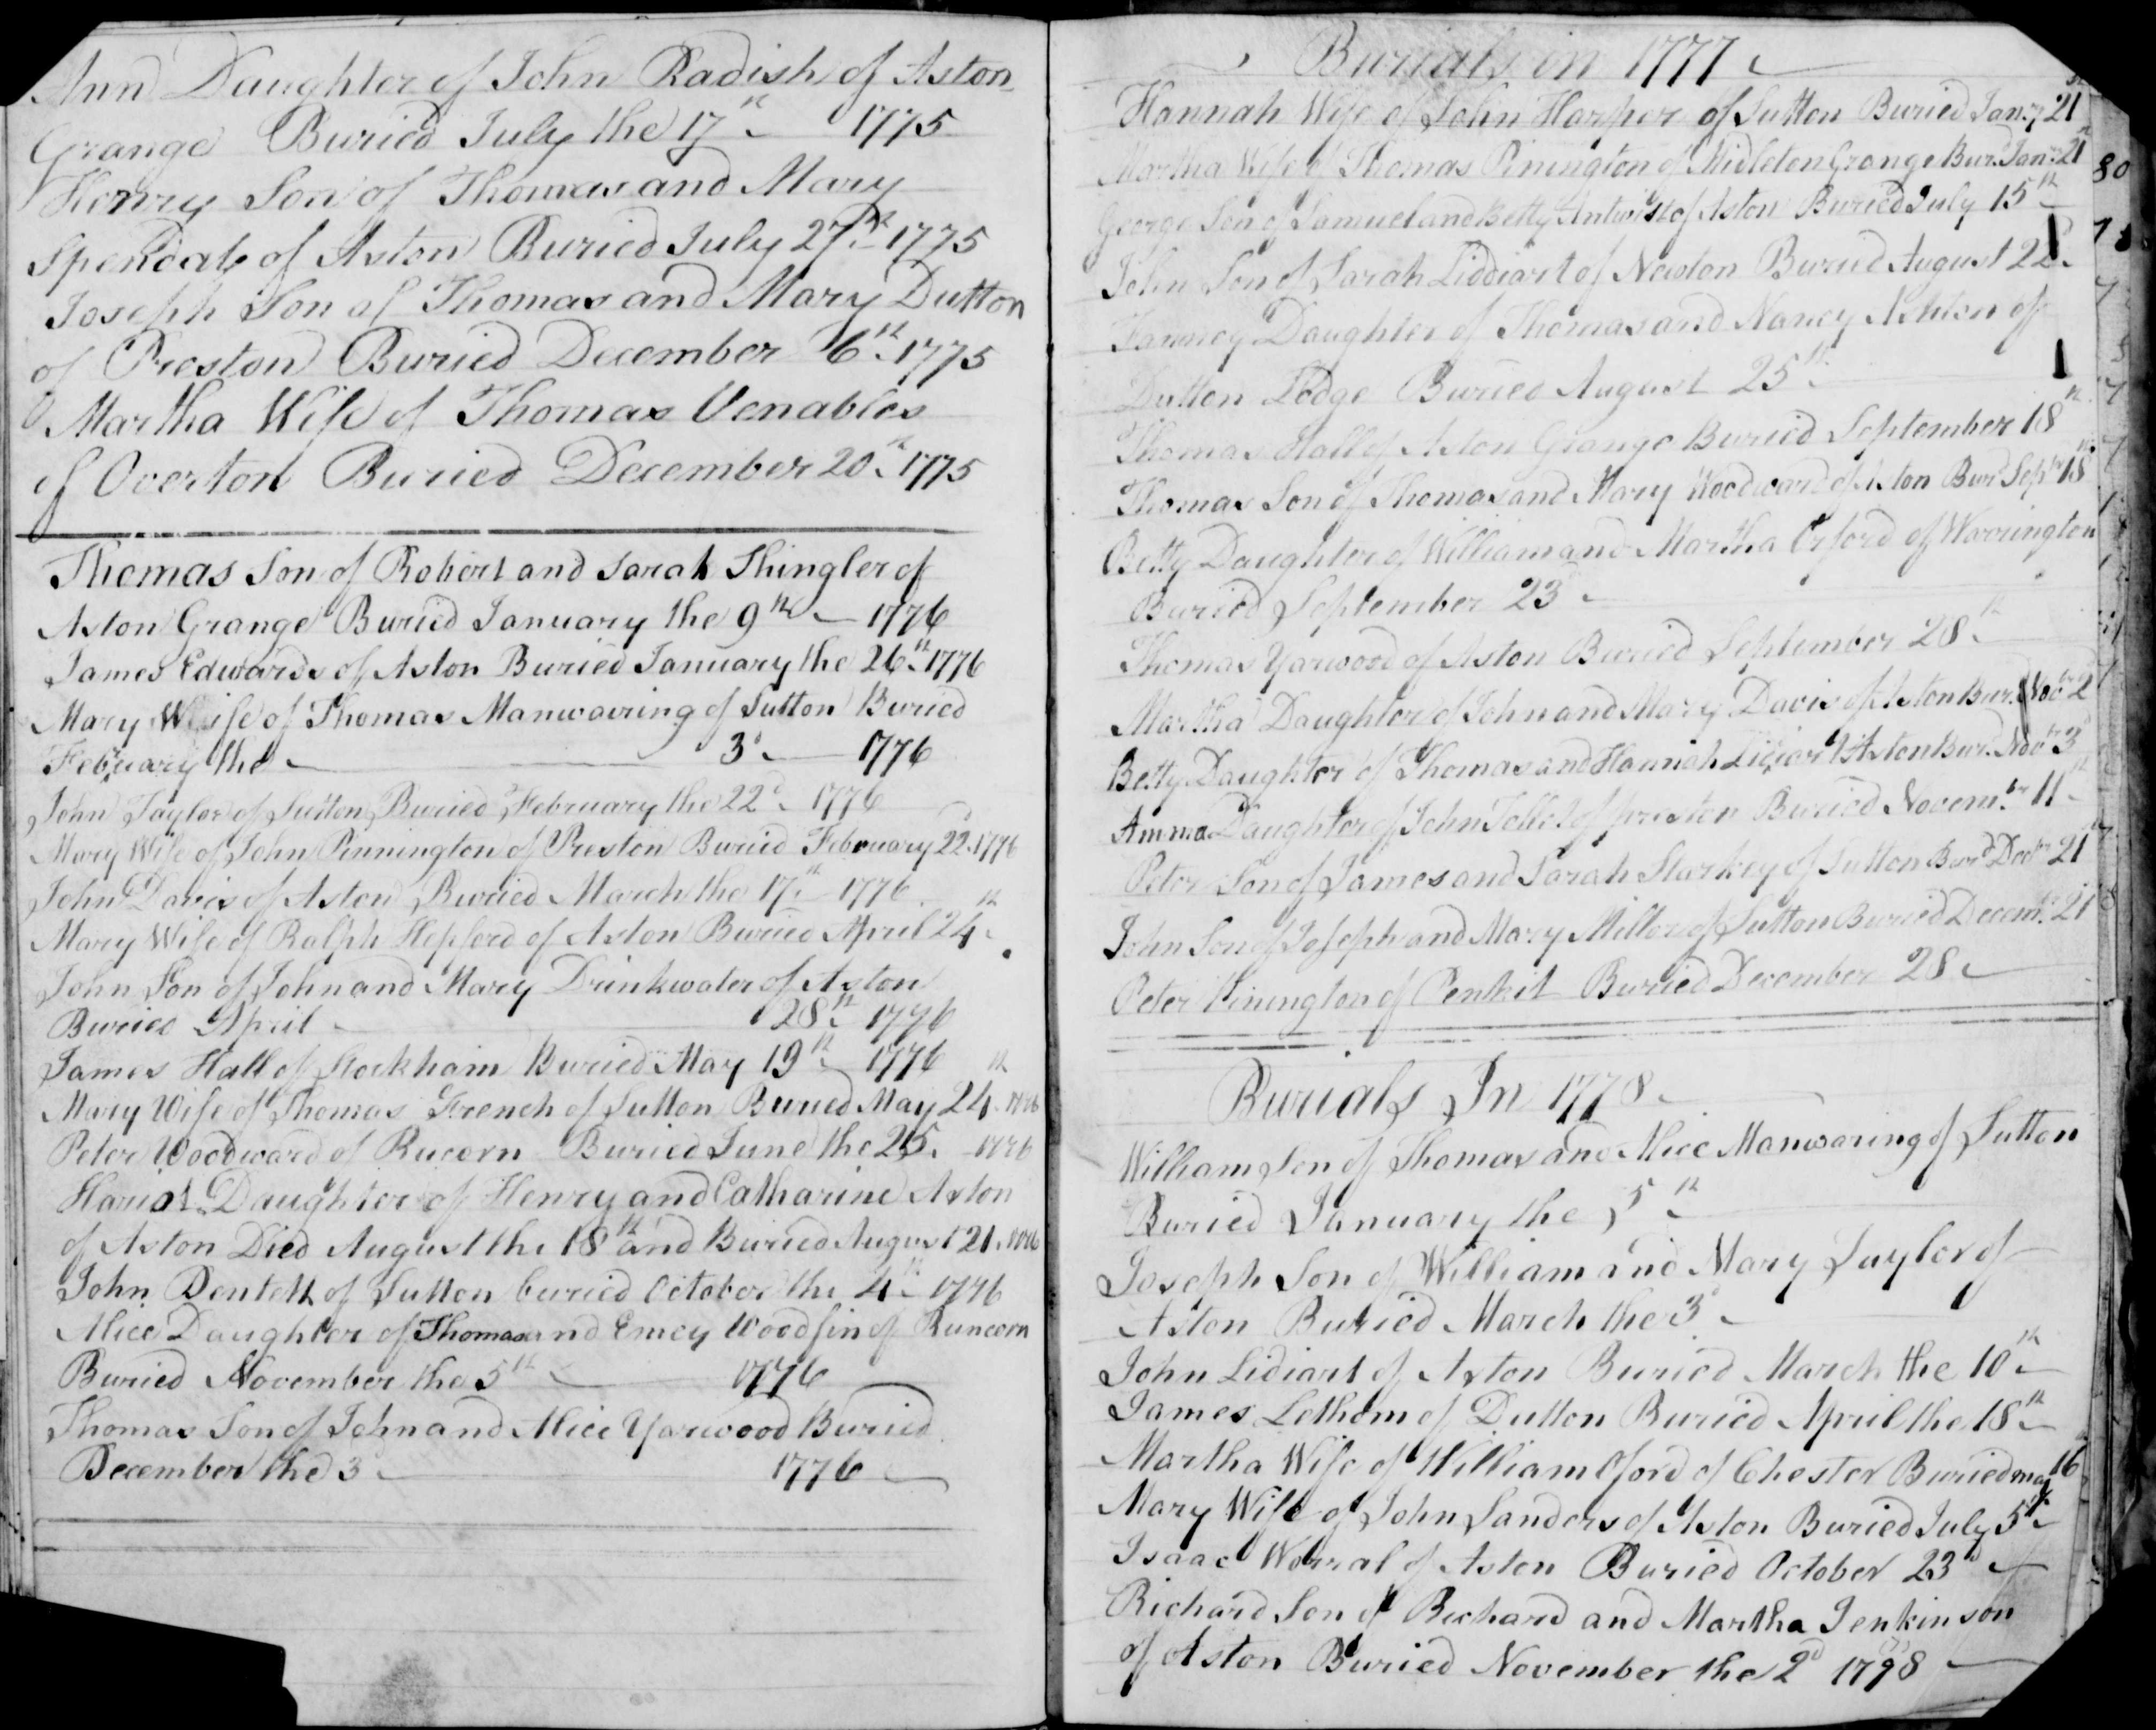 Ann Daughter of John Radish of Aston
Grange Buried July the 17th 1775
Henry Son of Thomas and Mary
Spendale of Aston Buried July 27th 1775
Joseph Son of Thomas and Mary Dutton
of Preston Buried December 6th 1775
Martha Wife of Thomas Venables
of Overton Buried December 20th 1775
Thomas Son of Robert and Sarah Shingler of
Aston Grange Buried January the 9th 1776
James Edwards of Aston Buried January the 26th 1776
Mary Wife of Thomas Manwaring of Sutton Buried
February the 3d 1776
John Taylor of Sutton Buried February the 22d 1776
Mary Wife of John Pinnington of Preston Buried February 22d 1776
John Davis of Aston Buried March the 17th 1776
Mary Wife of Ralph Hepford of Aston Buried April 24th
John Son of John and Mary Drinkwater of Aston
Buried April 28th 1776
James Hall of Stockham Buried May 19th 1776
Mary Wife of Thomas French of Sutton Buried May 24th 1776
Peter Woodward of Rucorn Buried June the 25 1776
Hariot Daughter of Henry and Catharine Aston
of Aston Died August the 18th and Buried August 21 1776
John Dentith of Sutton buried October the 4th 1776
Alice Daughter of Thomas and Emey Woodfin of Runcorn
Buried November the 5th 1776
Thomas Son of John and Alice Yarwood Buried
December the 3d 1776
Burials in 1777
Hannah Wife of John Harper of Sutton Buried Janry 21st
Martha Wife of Thomas Pinington of Midleton Grange Burd Janry 21st
George Son of Samuel and Betty Antwist of Aston Buried July 15th
John Son of Sarah Liddiart of Newton Buried August 22d
Fanney Daughter of Thomas and Nancy Ashton of
Dutton Lodge Buried August 25th
Thomas Hall of Aston Grange Buried September 18th
Thomas Son of Thomas and Mary Woodward of Aston Burd Sepbr 18th
Betty Daughter of William and Martha Orford of Warrington
Buried September 23d
Thomas Yarwood of Aston Buried September 28th
Martha Daughter of John and Mary Davis of Aston Burd Novbr 2d
Betty Daughter of Thomas and Hannah Lidiart Aston Burd Novbr 3d
Amma Daughter of John Tollet of preston Buried Novembr 11th
Peter Son of James and Sarah Starkey of Sutton Burd Decbr 21st
John Son of Joseph and Mary Millor of Sutton Buried Decembr 21
Peter Pinington of Penkit Buried December 28
Burials In 1778
William Son of Thomas and Alice Manwaring of Sutton
Buried January the 5th
Joseph Son of William and Mary Taylor of
Aston Buried March the 3d
John Lidiart of Aston Buried March the 10th
James Lethom of Dutton Buried April the 18th
Martha Wife of William Oford of Chester Buried may 16
Mary Wife of John Sanders of Aston Buried July 5th
Isaac Worral of Aston Buried October 23d
Richard Son of Richard and Martha Jenkinson
of Aston Buried November the 2d 1778